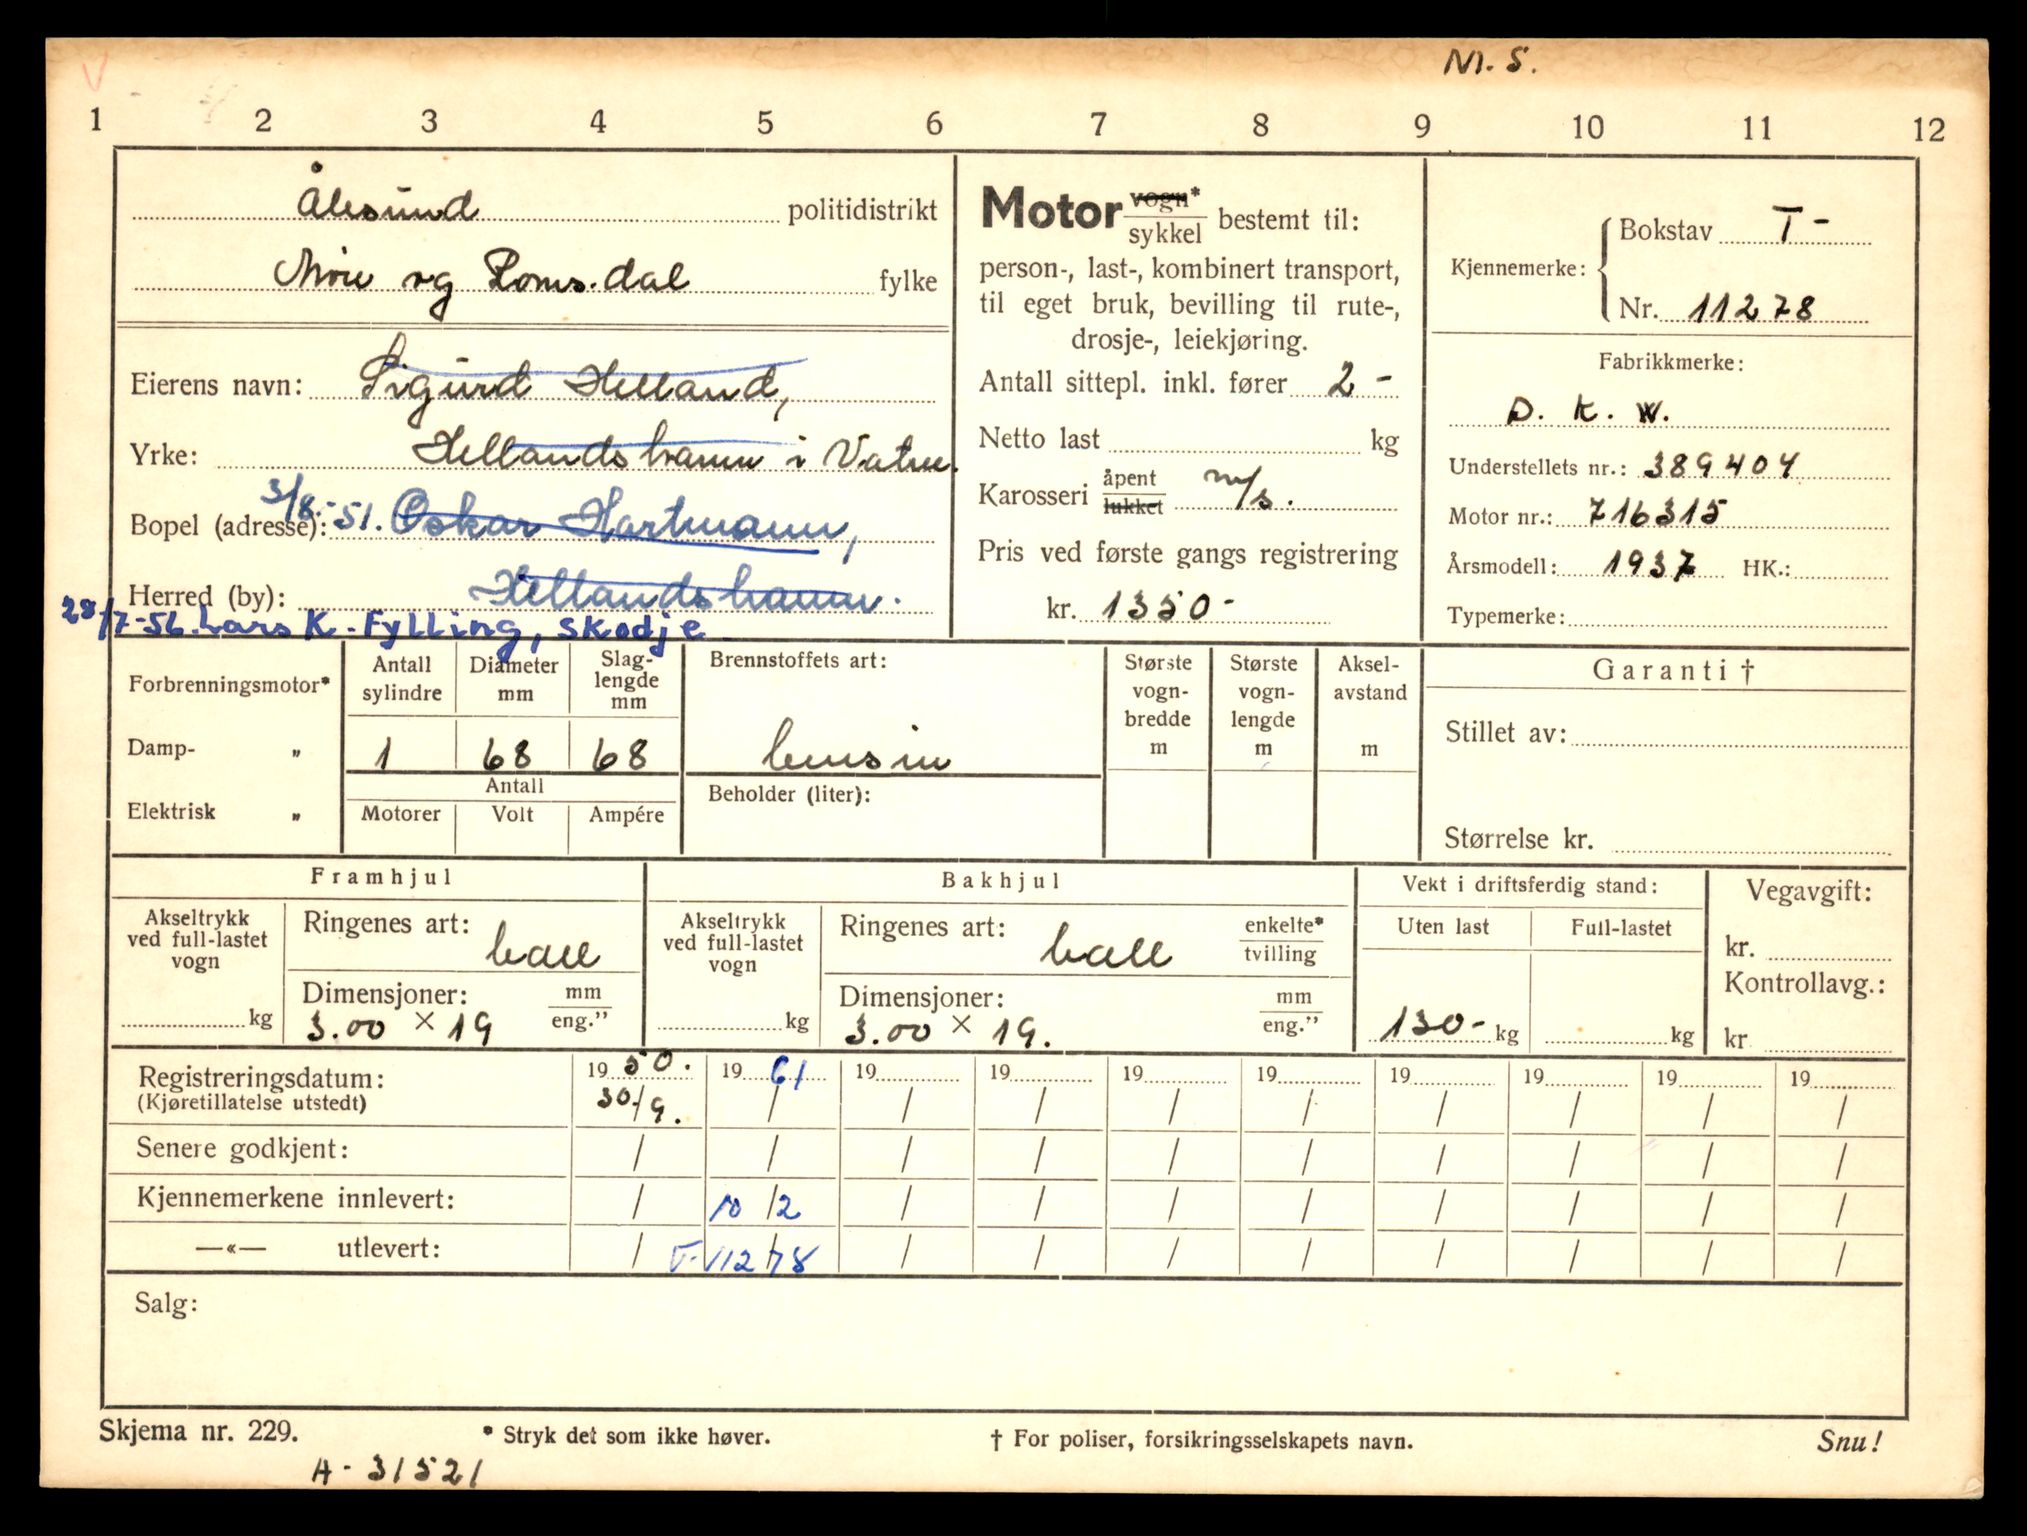 V
M. S.
1 2 3 4 5 6 7 8 9 10 11 12
Ålesund politidistrikt
Møre og Romsdal fylke
Eierens navn: Sigurd Helland,
Yrke: Hellandshamn i Vatne.
Bopel (adresse): 3/8.-51. Oskar Hartmann,
Herred (by): Hellandshamn.
28/7-56. Lars K. Fylling, Skodje
Motor vogn*
sykkel bestemt til:
person-, last-, kombinert transport,
til eget bruk, bevilling til rute-,
drosje-, leiekjøring.
Antall sittepl. inkl. fører 2 -
Netto last kg
Karosseri åpent
lukket m/s.
Pris ved første gangs registrering
kr. 1350 -
Kjennemerke: Bokstav T -
Nr. 11278
Fabrikkmerke:
D. K. W.
Understellets nr.: 389404
Motor nr.: 716315
Årsmodell: 1937 HK.:
Typemerke:
Forbrenningsmotor*
Damp- „
Elektrisk „
Antall sylindre
Diameter mm
Slag-lengde mm
1 68 68
Antall
Motorer Volt Ampére
Brennstoffets art:
bensin
Beholder (liter):
Største vogn-bredde m
Største vogn-lengde m
Aksel-avstand m
Garanti †
Stillet av:
Størrelse kr.
Framhjul
Akseltrykk
ved full-lastet
vogn
kg
Ringenes art: ball
Dimensjoner: mm
3.00 × 19 eng.”
Bakhjul
Akseltrykk
ved full-lastet
vogn
kg
Ringenes art: ball enkelte*
tvilling
Dimensjoner: mm
3.00 × 19. eng.”
Vekt i driftsferdig stand:
Uten last Full-lastet
130 - kg kg
Vegavgift:
kr.
Kontrollavg.:
kr
Registreringsdatum: 19 50. 19 61 19 19 19 19 19 19 19 19
(Kjøretillatelse utstedt) 30/9. / / / / / / / / /
Senere godkjent: / / / / / / / / / /
Kjennemerkene innlevert: / 10/2 / / / / / / / /
—«— utlevert: / T-11278 / / / / / / / /
Salg:
Skjema nr. 229. * Stryk det som ikke høver. † For poliser, forsikringsselskapets navn. Snu!
A - 31521